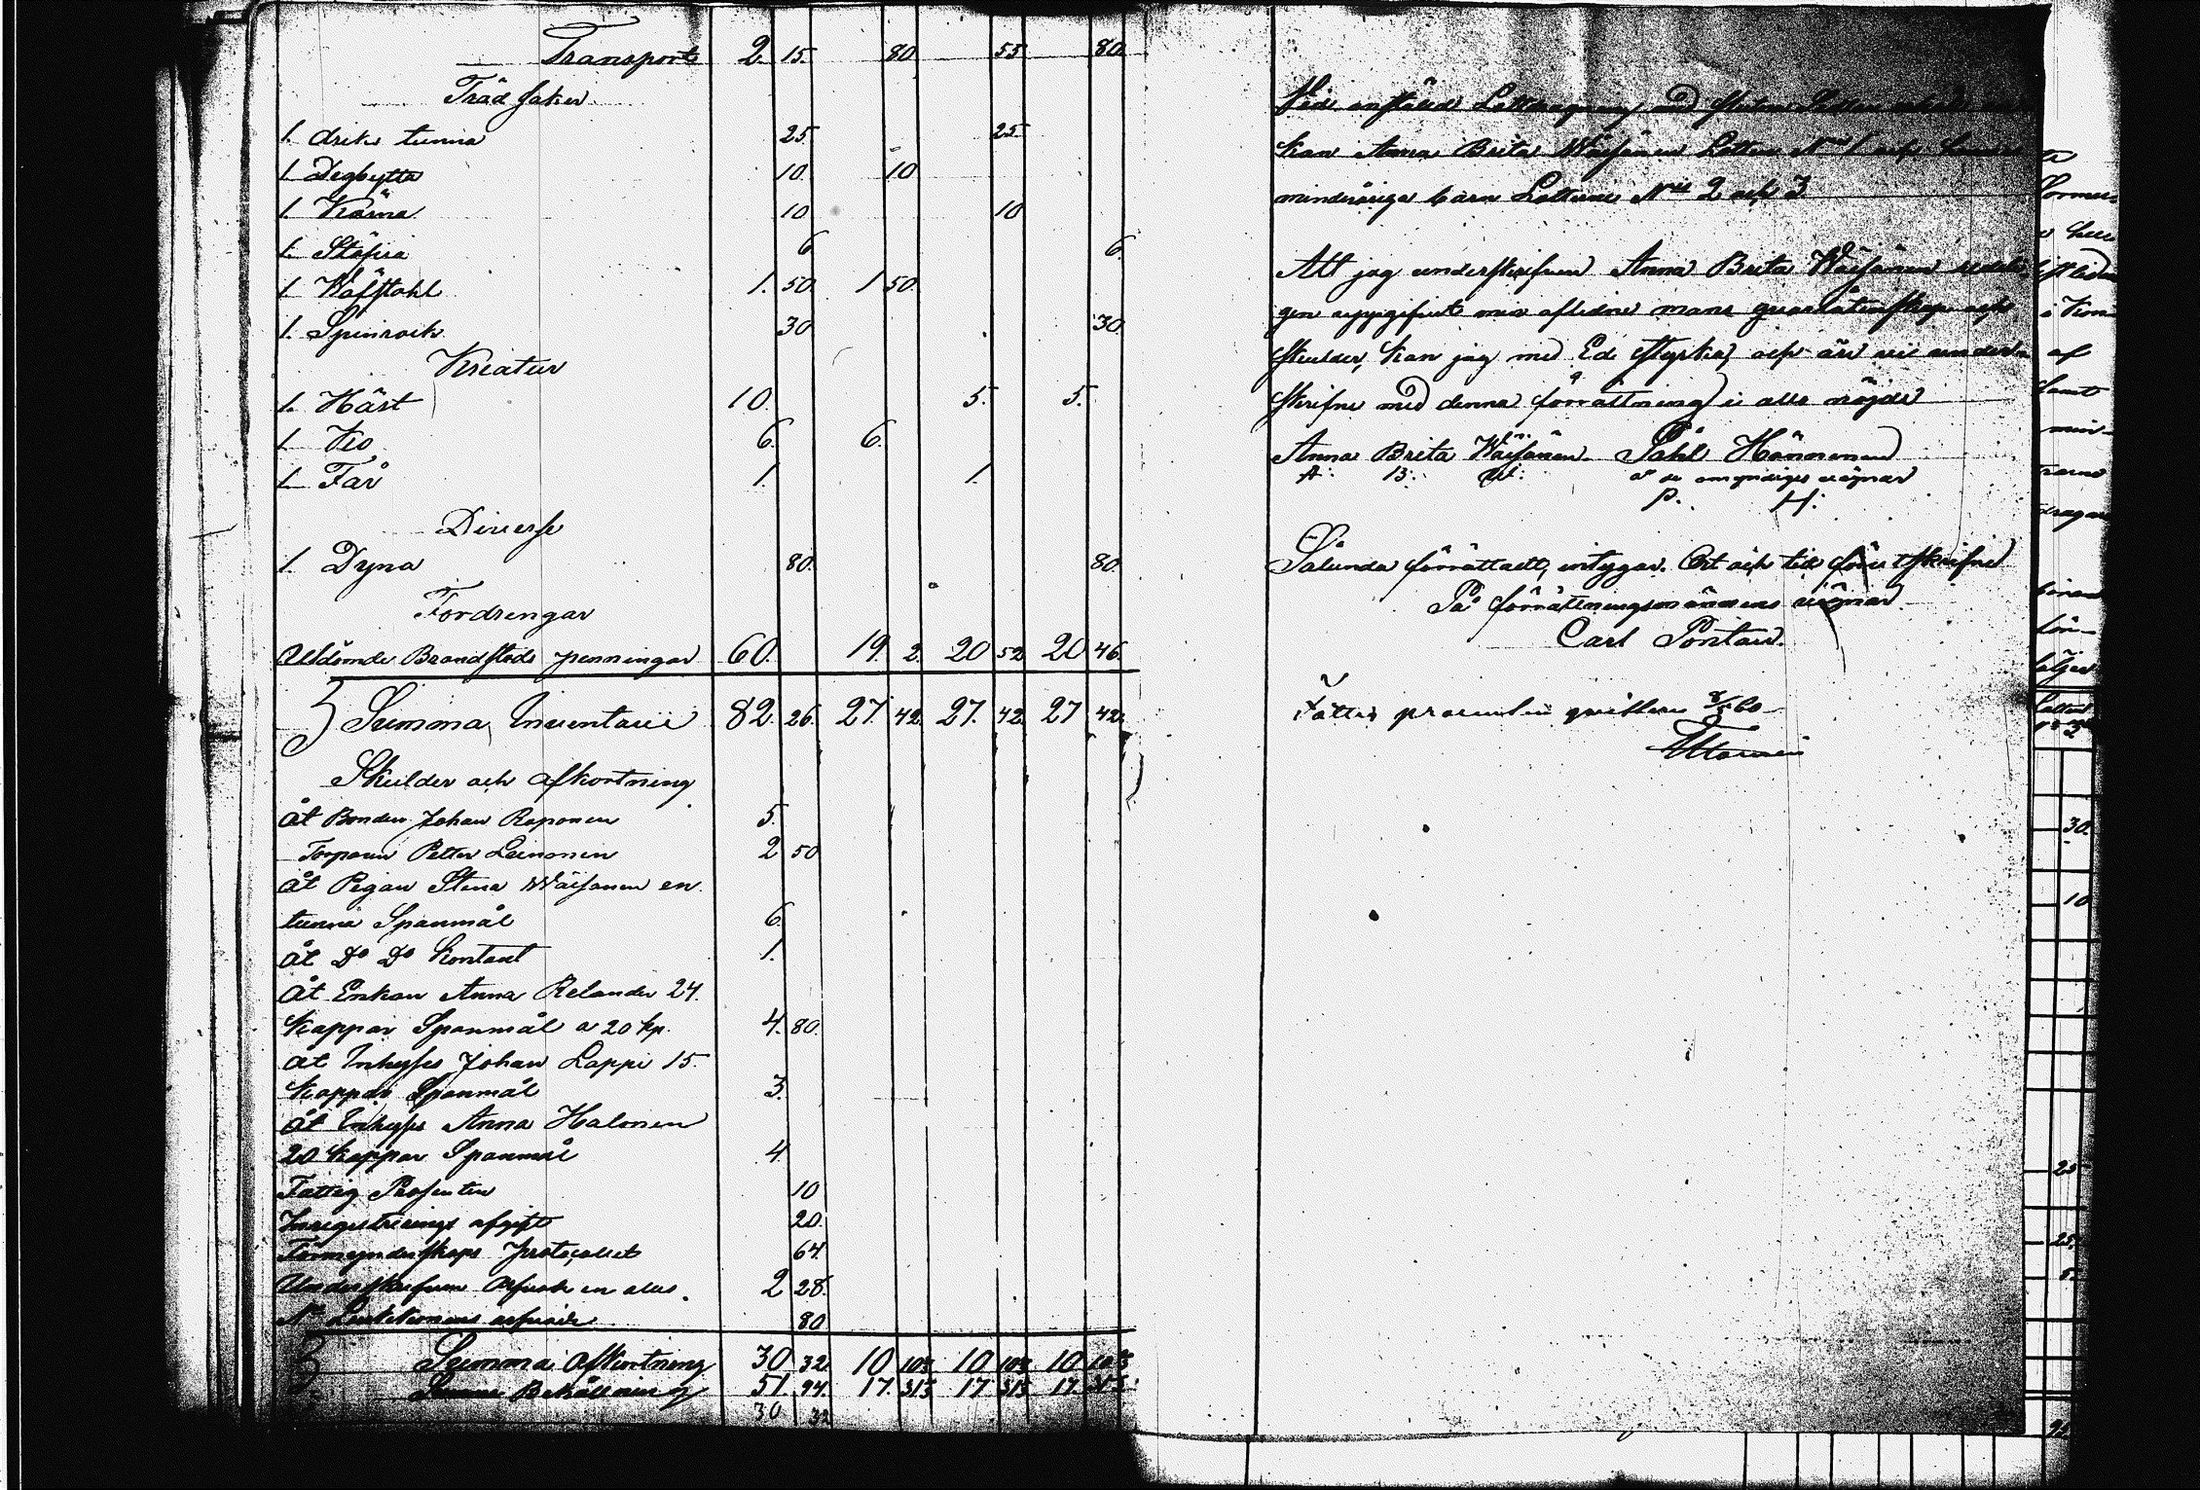 Transport 2. 15. 80 55 80
Träd saker
1. driks tunna 25. 25.
1 Degbytta 10. 10
1. Kärna 10 10
1. Stäfva 6 6.
1 Wäfstohl 1. 50. 1 50.
1. Spinrock 30 30
Kreatur
1. Häst 10. 5. 5.
1 Ko 6. 6.
1 Får 1. 1.
Diverse
1. Dyna 80. 80
Fordringar
Utdömde Brandstods penningar 60. 19. 2. 20 52 20 46.
Summa Inventarii 82. 26. 27. 42 27. 42 27 42.
Skulder och afkortning
åt Bonden Johan Roponen 5.
Torparen Petter Leinonen 2 50
åt Pigan Stina Wäisänen en
tunna Spanmål 6.
åt Do Do Kontant 1.
åt Enkan Anna Relander 24.
Kappar Spanmål a 20 kp. 4. 80.
åt Inhyses Johan Lappi 15.
Kappar Spanmål 3.
åt Inhyses Anna Halonen
20 Kappar Spanmål 4
Fattig Prosenten 10
Inregistrerings afgift 20.
Förmynderskaps protocollet 64.
2 28.
arfvode 80
Summa Afkortning 30 32 10 10⅔ 10 10⅔ 10 10⅔
Summa Behållning 51. 94. 17. 31⅓ 17 31⅓ 17. 31⅓
30 32
Kan Anna Brita Wäisänen Lotten No 1 och
minderåriga barn Lotterne Nris 2 och 3
Att jag underskrifven Anna Brita Wäisänen redeli-
gen uppgifvit min aflidne mans qvarlåtenskap och
skulder, kan jag med Ed styrka, och äro vi under-
skrifne med denna förrättning i allo nöjde
Anna Brita Wäisänen. Påhl Hänninen
A. B. W. å de omyndiges vägnar
P. H.
Sålunda förrättadt, intygar. Ort och tid förutskrifne
På förrättningsmännens vägnar
Carl Pontan.
Fattig procenten qvitteras 8/5 60